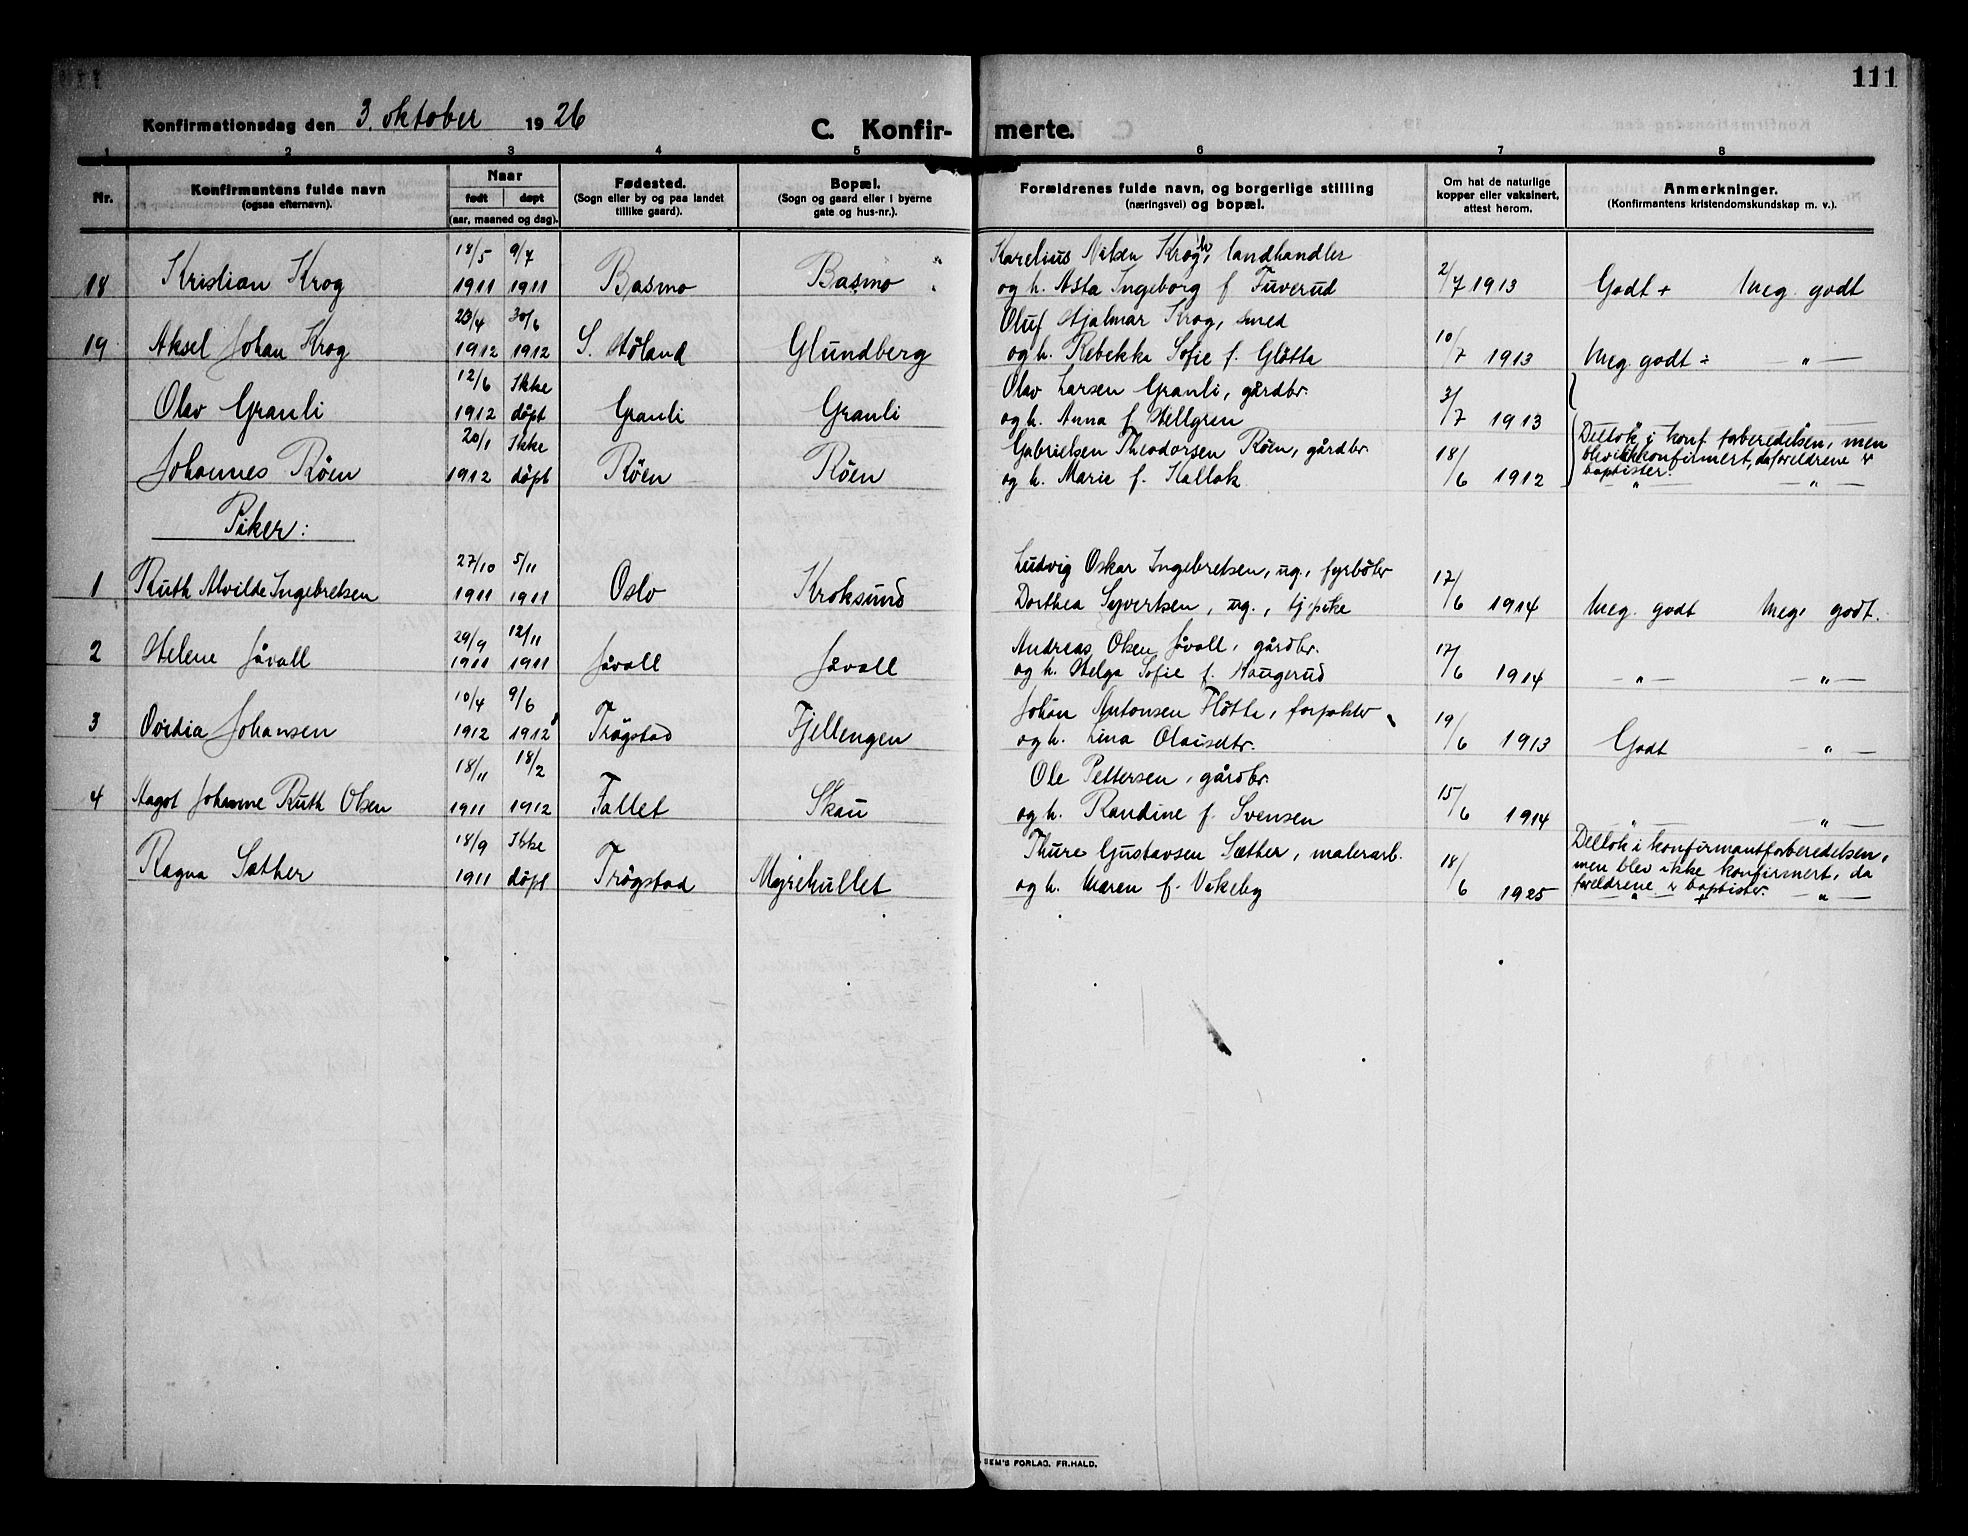 111
Konfirmationsdag den 3. oktober 1926
C. Konfir- merte.
1 2 3 4 5 6 7 8
Nr.
Konfirmantens fulde navn
(ogsaa efternavn).
Naar
født døpt
(aar, maaned og dag).
Fødested.
(Sogn eller by og paa landet
tillike gaard).
Bopæl.
(Sogn og gaard eller i byerne
gate og hus-nr.).
Forældrenes fulde navn, og borgerlige stilling
(næringsvei) og bopæl.
Om hat de naturlige
kopper eller vaksinert,
attest herom.
Anmerkninger.
(Konfirmantens kristendomskundskap m. v.).
18/5 9/7 Karelius Nilsen Krogh, landhandler
18 Kristian Krog 1911 1911 Basmo Basmo og h. Asta Ingeborg f. Tuverud 2/7 1913 Godt + Meg. godt
23/4 30/6 Oluf Hjalmar Krog, smed
19 Aksel Johan Krog 1912 1912 S. Høland Glundberg og h. Rebekka Sofie f. Gløtta 10/7 1913 Meg. godt ÷ — „ —
12/6 Ikke Olav Larsen Granli, gårdbr.
Olav Granli 1912 døpt Granli Granli og h. Anna f. Hellgren 3/7 1913
20/1 Ikke Gabrielsen Theodorsen Røen, gårdbr. Deltok i konf forberedelsen, men
blev ikke konfirmert, da foreldrene er
Johannes Røen 1912 døpt Røen Røen og h. Marie f. Kallak 18/6 1912 baptister.
— „ — — „ —
Piker:
27/10 5/11 Ludvig Oskar Ingebretsen, ug., fyrbøter
1 Ruth Alvilde Ingebretsen 1911 1911 Oslo Kroksund Dorthea Syvertsen, ug., tj.pike 17/6 1914 Meg. godt Meg. godt.
29/9 12/11 Andreas Olsen Jåvall, gårdbr.
2 Helene Jåvall 1911 1911 Jåvall Jåvall og h. Helga Sofie f. Haugerud 17/6 1914 — „ — — „ —
10/4 9/6 Johan Antonsen Fløtta, forpakter
3 Ovidia Johansen 1912 1912 Trøgstad Fjellengen og h. Lina Olausdtr. 19/6 1913 Godt — „ —
18/11 18/2 Ole Pettersen, gårdbr.
4 Magot Johanne Ruth Olsen 1911 1912 Fallet Skau og h. Randine f. Svensen 15/6 1914 — „ — — „ —
18/9 Ikke Thure Gustavsen Sæther, malerarb. Deltok i konfirmantforberedelsen,
men blev ikke konfirmert, da
Ragna Sæther 1911 døpt Trøgstad Myrehullet og h. Maren f. Vikeby 18/6 1925 foreldrene er baptister.
— „ — — „ —
SEM'S FORLAG, FR.HALD.